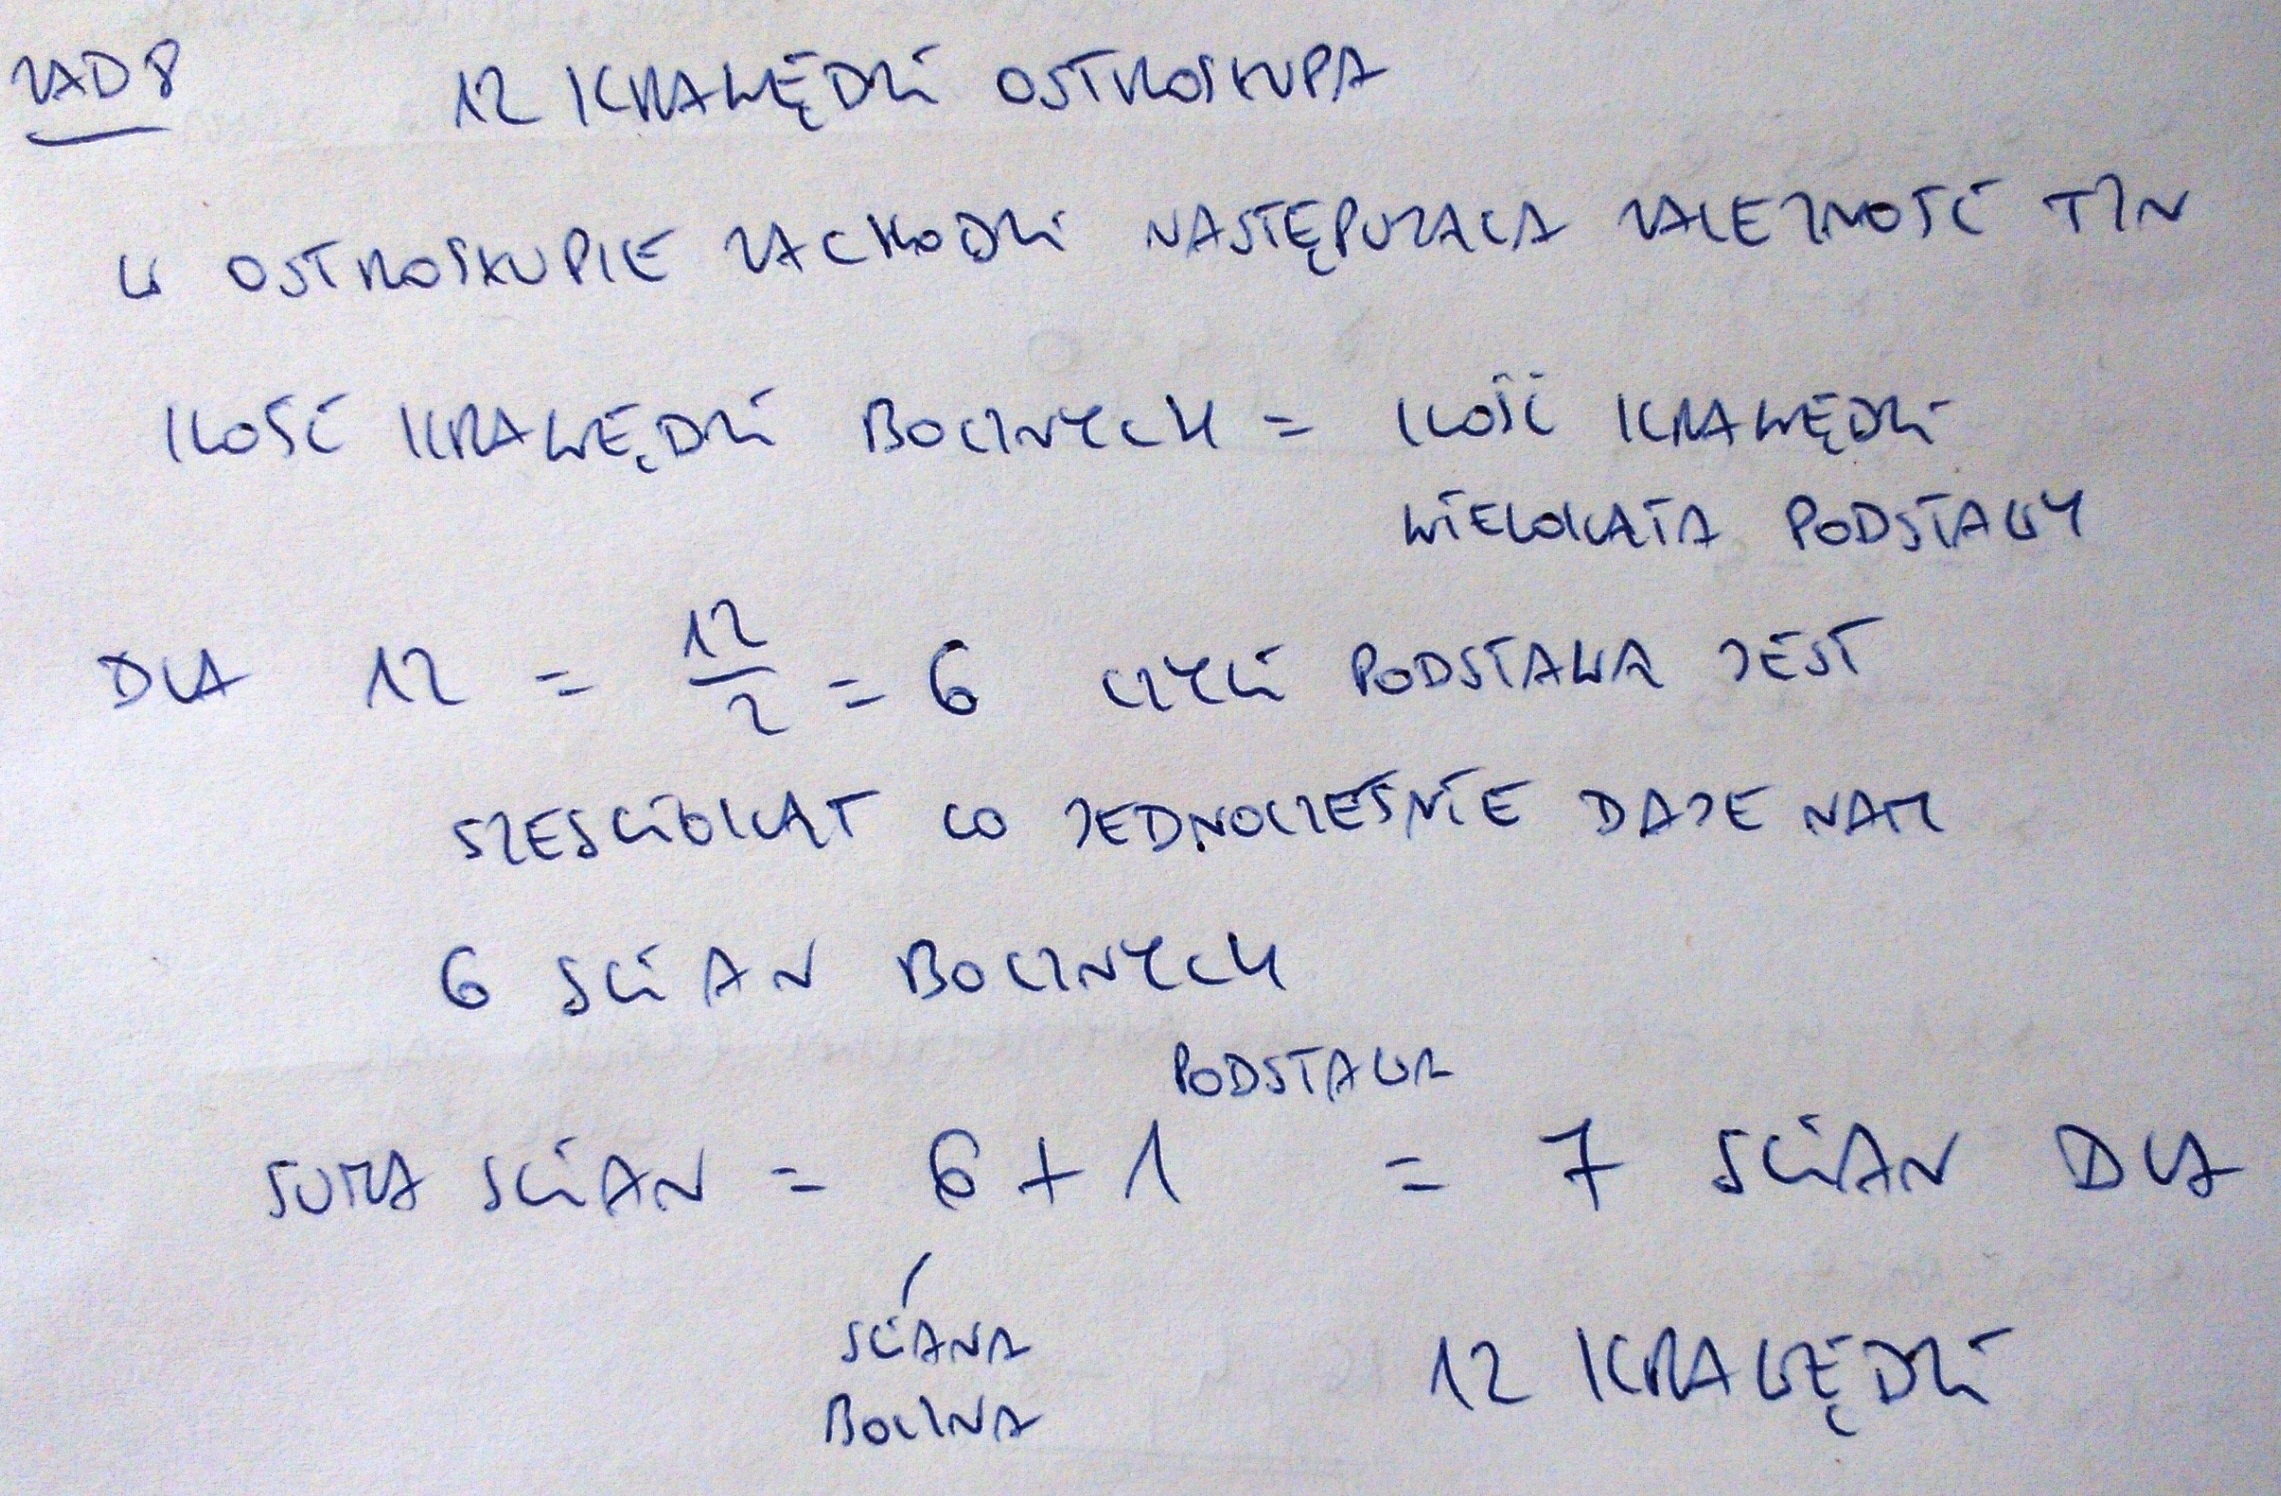 ZAD 8 12 KRAWĘDZI OSTROSŁUPA
W OSTROSŁUPIE ZACHODZI NASTĘPUJĄCA ZALEŻNOŚĆ TZN
ILOŚĆ KRAWĘDZI BOCZNYCH = ILOŚĆ KRAWĘDZI
WIELOKĄTA PODSTAWY
DLA 12 = 12/2 = 6 CZYLI PODSTAWĄ JEST
SZEŚCIOKĄT CO JEDNOCZEŚNIE DAJE NAM
6 ŚCIAN BOCZNYCH
PODSTAWA
SUMA ŚCIAN = 6 + 1 = 7 ŚCIAN DLA
ŚCIANA
BOCZNA
12 KRAWĘDZI